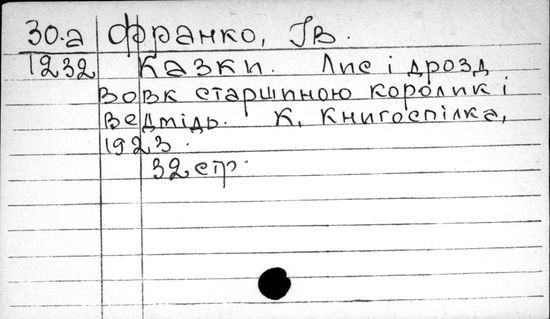 30.а Франко, Ів.
1232 Казки. Лис і дрозд
Вовк старшиною королик і
Ведмідь. К, Книгоспілка,
1923.
32 стр.